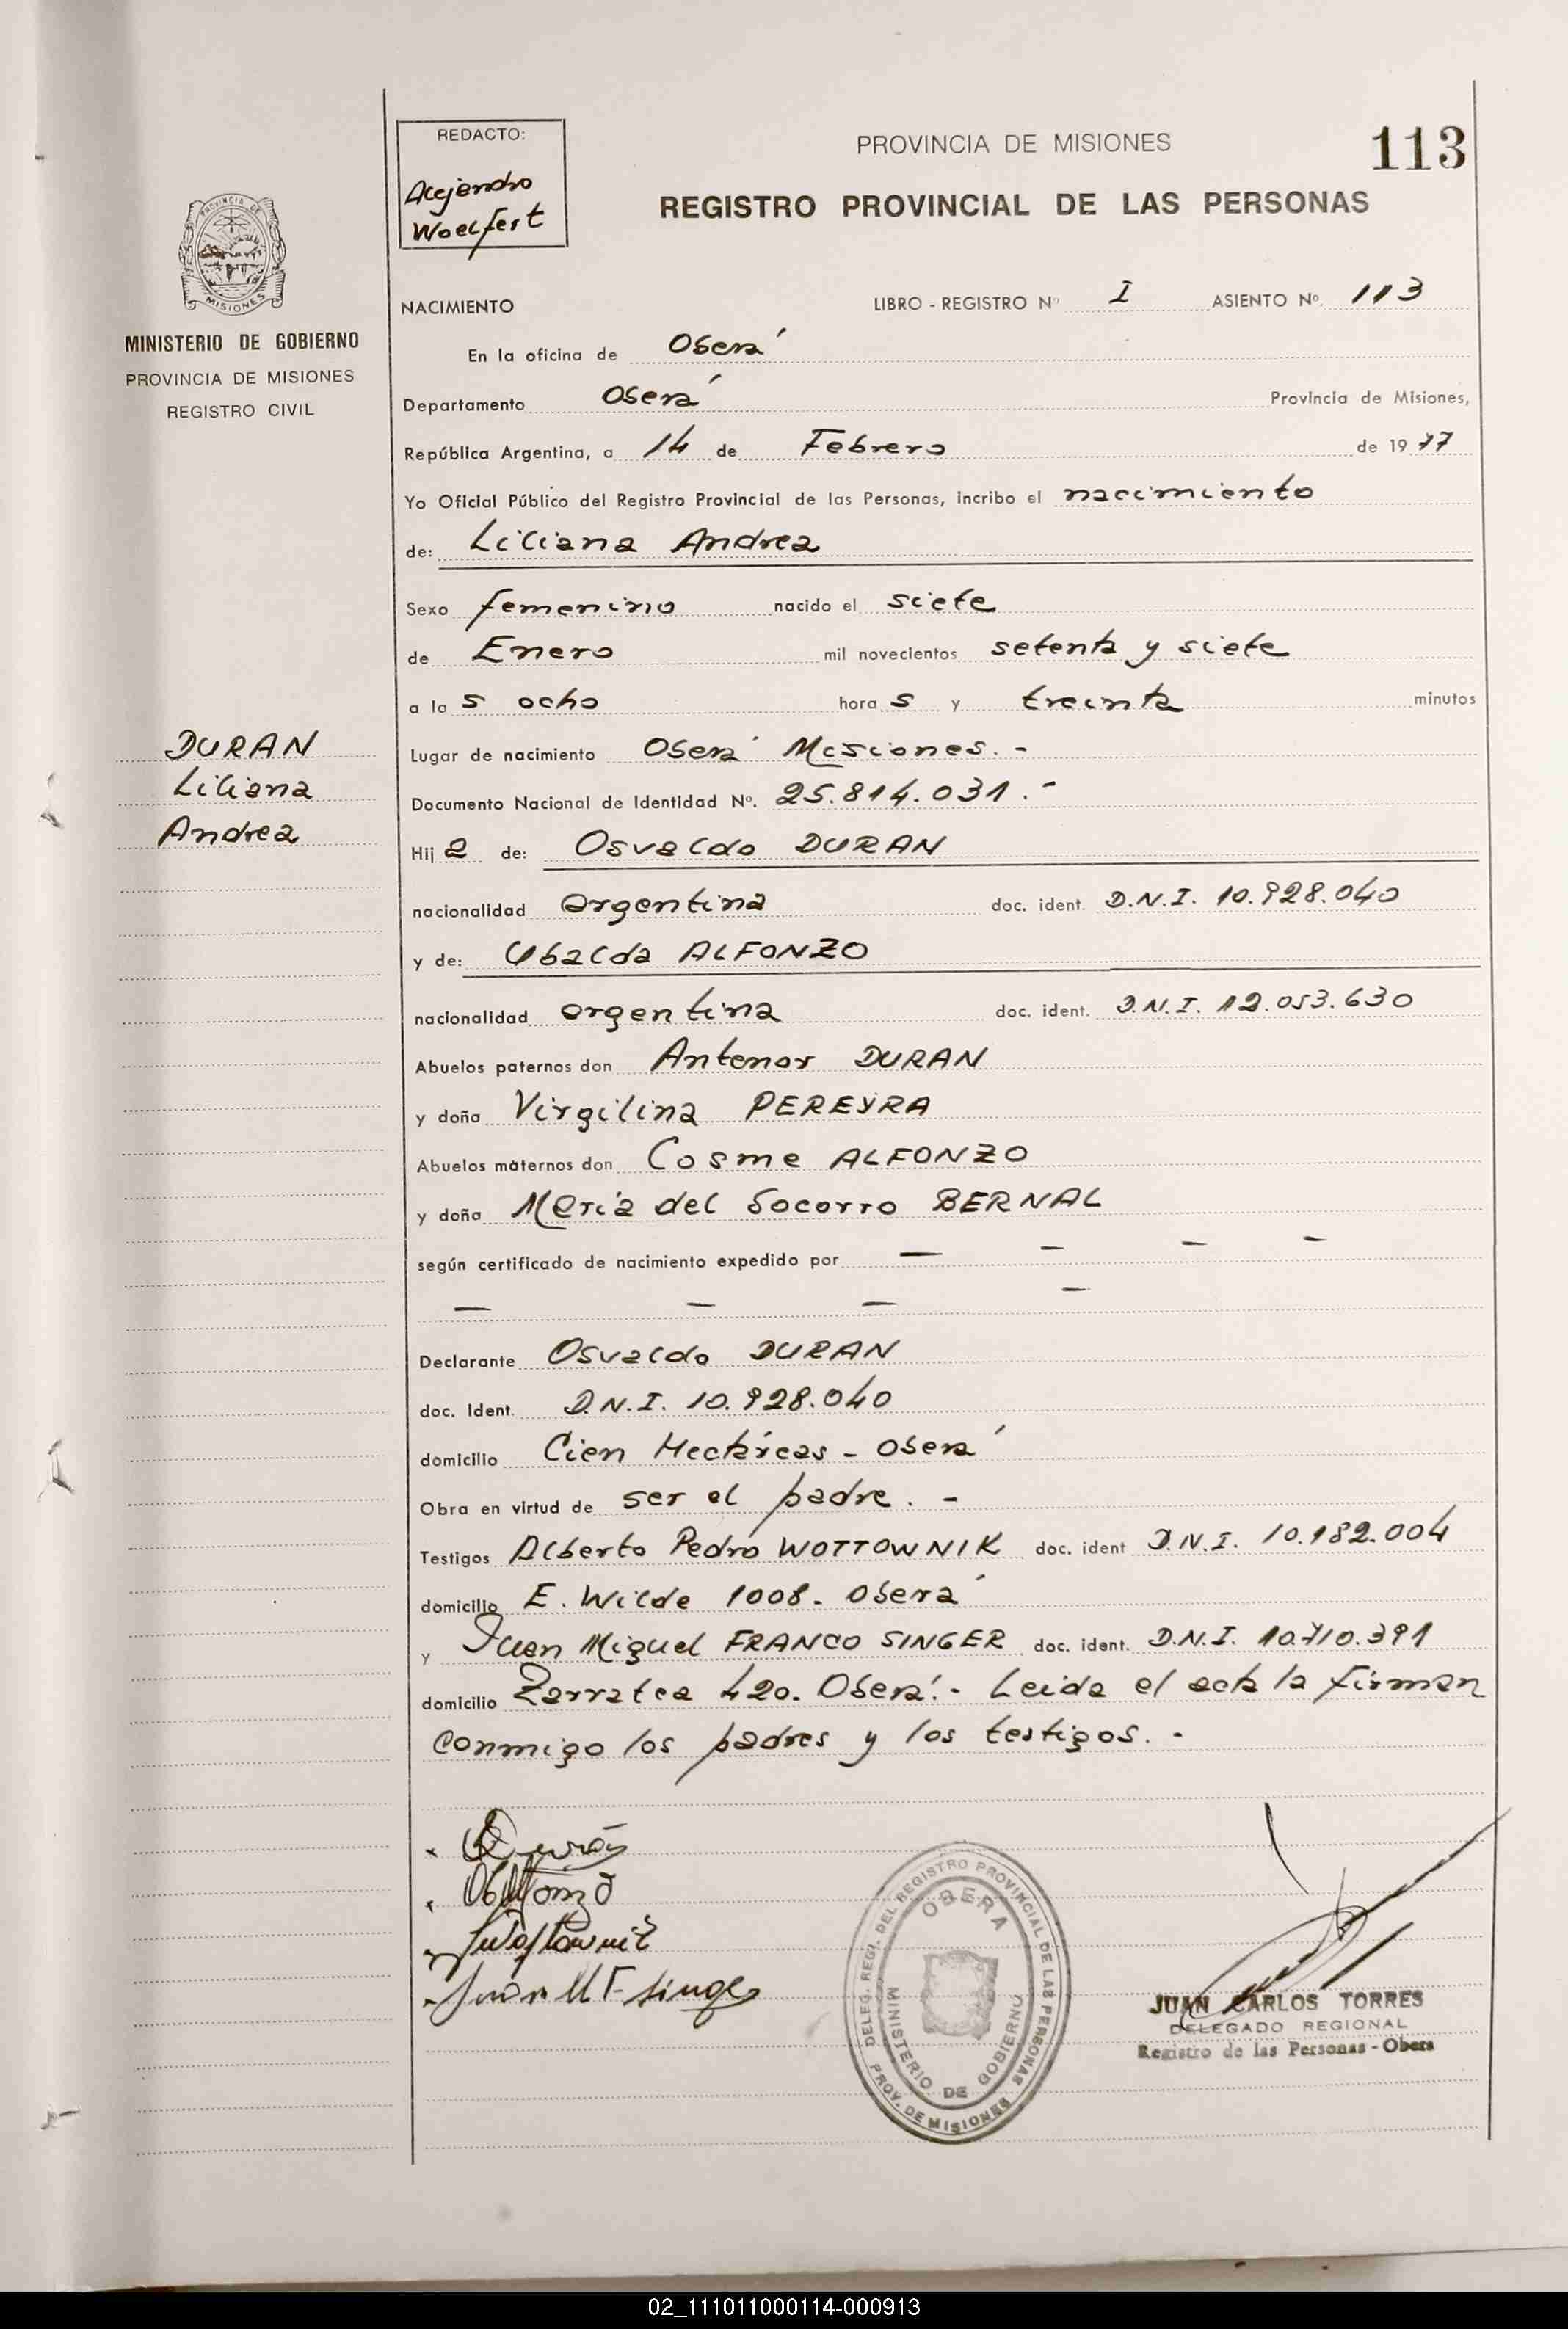 REDACTO:
Alejandro
Woelfert
PROVINCIA DE MISIONES
113
REGISTRO PROVINCIAL DE LAS PERSONAS
PROVINCIA DE
MISIONES
MINISTERIO DE GOBIERNO
PROVINCIA DE MISIONES
REGISTRO CIVIL
NACIMIENTO LIBRO - REGISTRO Nº I ASIENTO Nº. 113
En la oficina de Oberá
Departamento Oberá Provincia de Misiones,
República Argentina, a 14 de Febrero de 1977
Yo Oficial Público del Registro Provincial de las Personas, incribo el nacimiento
de: Liliana Andrea
Sexo femenino nacido el siete
de Enero mil novecientos setenta y siete
a las ocho horas y treinta minutos
DURAN
Liliana
Andrea
Lugar de nacimiento Oberá Misiones. -
Documento Nacional de Identidad Nº. 25.814.031. -
Hija de: Osvaldo DURAN
nacionalidad argentina doc. ident. D.N.I. 10.928.040
y de: Ubalda ALFONZO
nacionalidad argentina doc. ident. D.N.I. 12.053.630
Abuelos paternos don Antenor DURAN
y doña Virgilina PEREYRA
Abuelos maternos don Cosme ALFONZO
y doña María del Socorro BERNAL
según certificado de nacimiento expedido por — — — —
— — — —
Declarante Osvaldo DURAN
doc. Ident. D.N.I. 10.928.040
domicilio Cien Hectáreas - Oberá
Obra en virtud de ser el padre. -
Testigos Alberto Pedro WOTTOWNIK doc. ident D.N.I. 10.182.004
domicilio E. Wilde 1008. Oberá
y Juan Miguel FRANCO SINGER doc. ident. D.N.I. 10.710.391
domicilio Zarratea 420. Oberá. - Leida el acta la firman
conmigo los padres y los testigos. -
Durán
Juan M F Singer
DELEG. REGI. DEL REGISTRO PROVINCIAL DE LAS PERSONAS
OBERA
MINISTERIO DE GOBIERNO
PROV. DE MISIONES
JUAN CARLOS TORRES
DELEGADO REGIONAL
Registro de las Personas - Obera
02_111011000114-000913